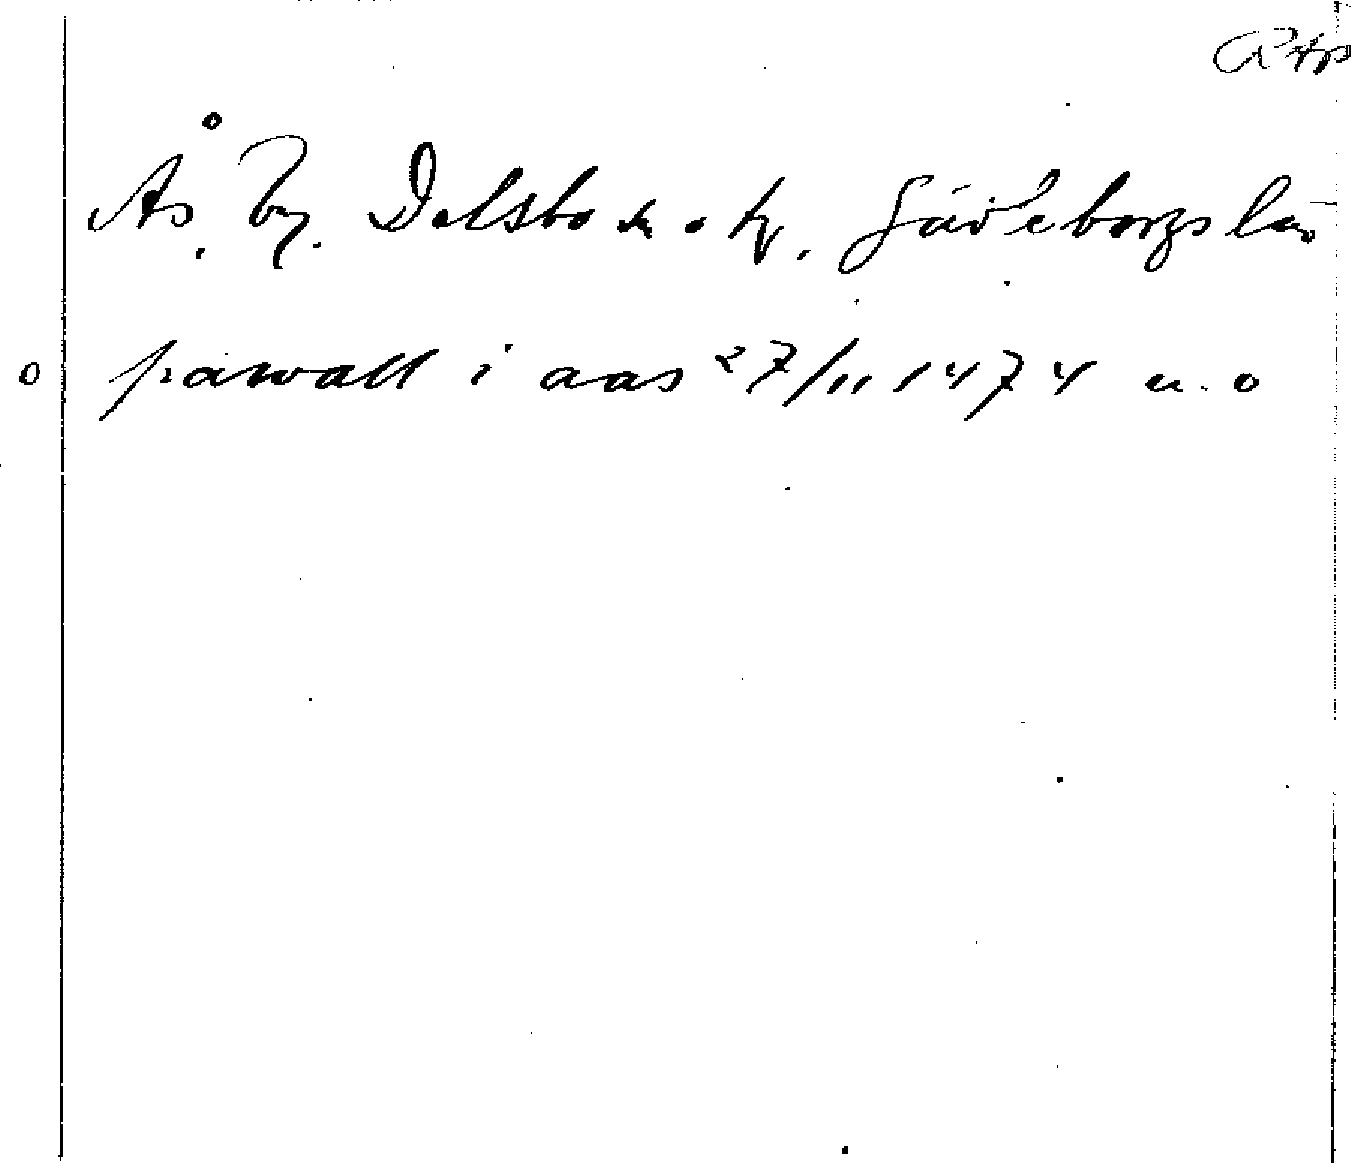 Ås. by. Delsbo sn o. hd. Gävleborgs län
o pawall i aas 27/11 1474 u. o